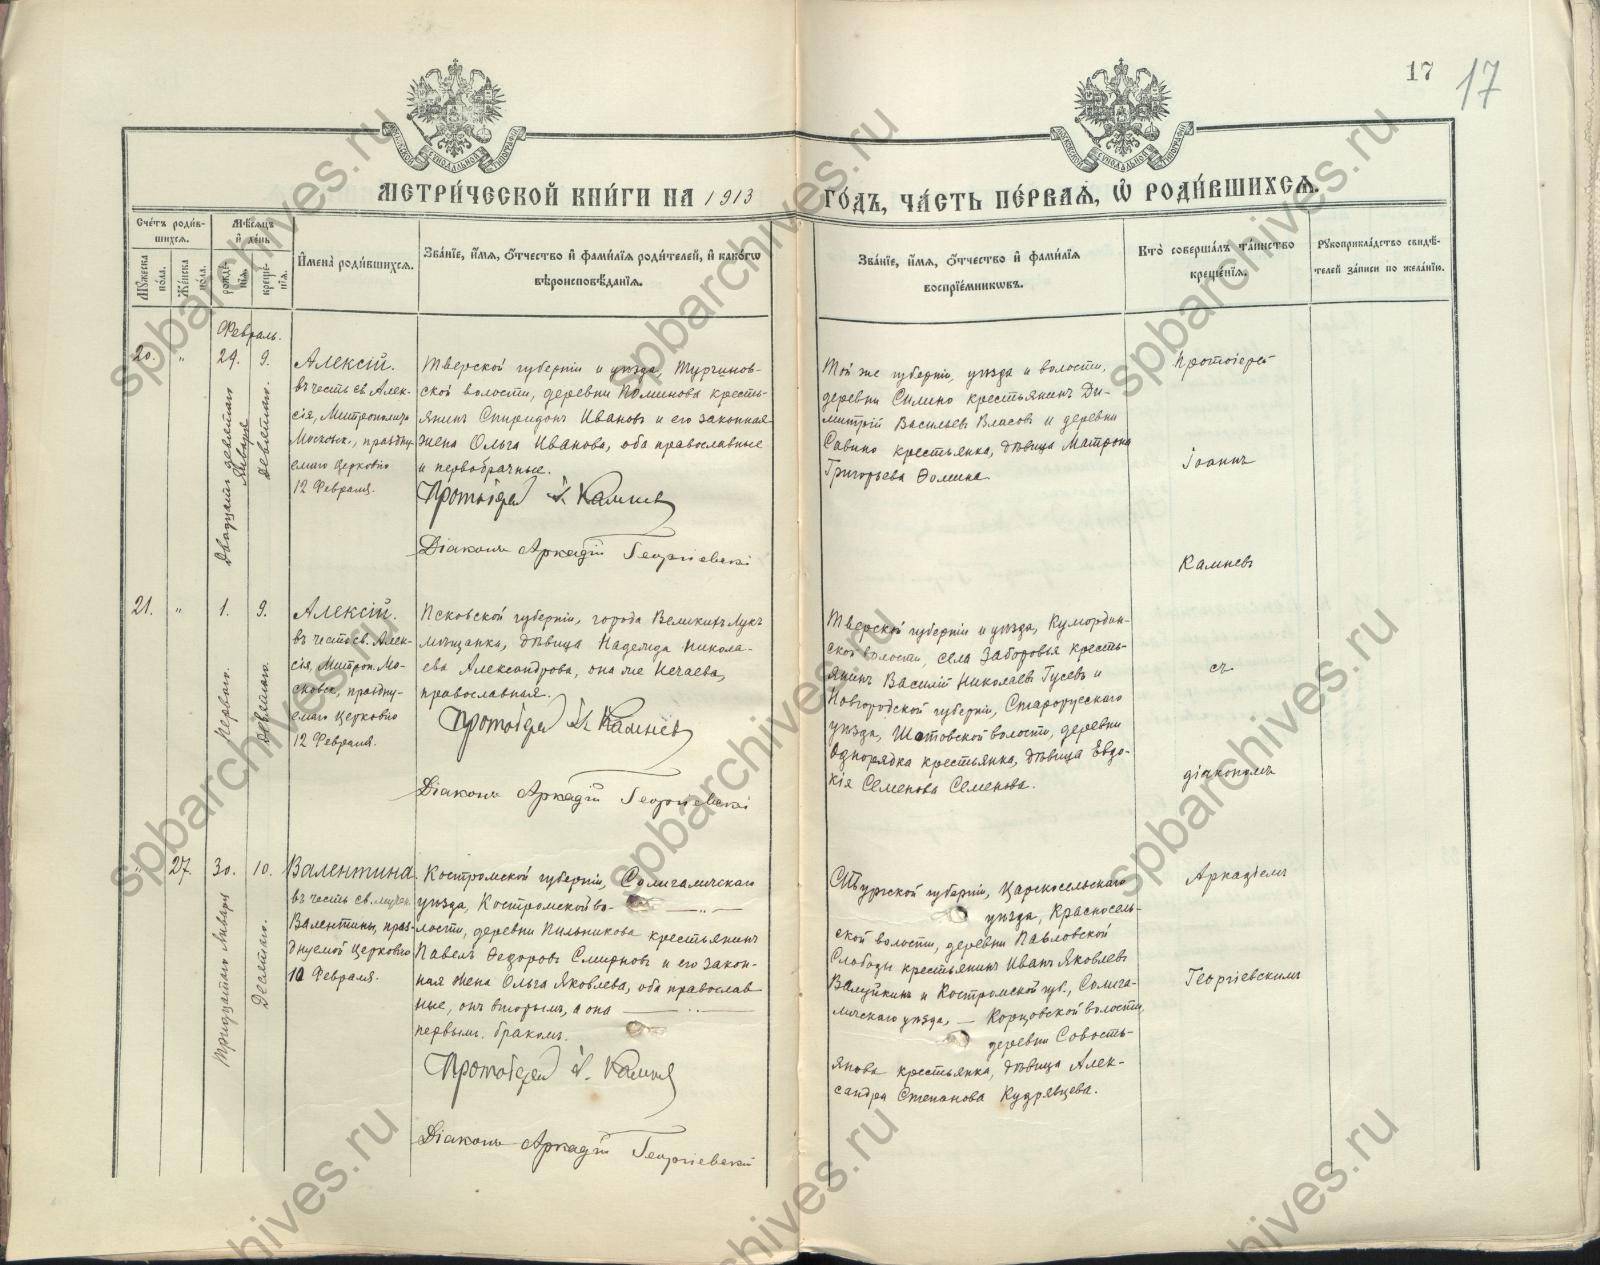 17
17
МЕТРИ́ЧЕСКОЙ КНИ́ГИ НА 1913 ГО́ДЪ, ЧА́СТЬ ПЕ́РВАѦ, Ѡ҆ РОДИ́ВШИХСѦ.
Сче́тъ роди́в-
шихсѧ.
Мѣ́сѧцъ
и҆ де́нь
Мꙋжеска по́ла.
Же́нска по́ла.
рожде́-
нїѧ.
креще́-
нїѧ.
И҆мена̀ роди́вшихсѧ.
Зва́нїе, и҆́мѧ, ѻ҆́тчество и҆ фами́лїѧ роди́телей, и҆ како́гѡ
вѣроисповѣ́данїѧ.
Зва́нїе, и҆́мѧ, ѻ҆́тчество и҆ фами́лїѧ
воспрїе́мникѡвъ.
Кто̀ соверша́лъ та́инство
креще́нїѧ.
Рꙋкоприкла́дство свидѣ́-
телей за́писи по жела́нїю.
Февраль.
20. " 29. 9.
Двадцать девятаго Января
девятаго.
Алексій.
въ честь св. Алек-
сія, Митрополита
Московск., праздну-
емаго Церковію
12 Февраля.
Тверской губерніи и уѣзда, Тургинов-
ской волости, деревни Поминова кресть-
янинъ Спиридонъ Ивановъ и его законная
жена Ольга Иванова, оба православные
и первобрачные.
Протоіерей І. Камневъ
Діаконъ Аркадій Георгіевскій
Той же губерніи, уѣзда и волости,
деревни Силино крестьянинъ Ди-
митрій Васильевъ Власовъ и деревни
Савино крестьянка, дѣвица Матрона
Григорьева Ѳомина.
Протоіерей
Іоаннъ
Камневъ
21. " 1. 9.
Перваго.
девятаго.
Алексій.
въ честь св. Алек-
сія, Митроп. Мо-
сковск., праздну-
емаго Церковію
12 Февраля.
Псковской губерніи, города Великихъ Лукъ
мѣщанка, дѣвица Надежда Никола-
ева Александрова, она же Нечаева,
православная.
Протоіерей І. Камневъ
Діаконъ Аркадій Георгіевскій
Тверской губерніи и уѣзда, Кумордин-
ской волости, села Заборовья кресть-
янинъ Василій Николаевъ Гусевъ и
Новгородской губерніи, Старорусского
уѣзда, Шотовской волости, деревни
Однорядка крестьянка, дѣвица Евдо-
кія Семенова Семенова.
съ
діакономъ
27. 30. 10.
Тридцатаго Января
Десятаго.
Валентина
въ честь св. мучен.
Валентины, праз-
днуемой Церковію
10 Февраля.
Костромской губерніи, Солигаличскаго
уѣзда, Костромской во-
лости, деревни Пильникова крестьянинъ
Павелъ Ѳедоровъ Смирновъ и его закон-
ная жена Ольга Яковлева, оба православ-
ные, онъ вторымъ, а она
первымъ бракомъ.
Протоіерей І. Камневъ
Діаконъ Аркадій Георгіевскій
СПбургской губерніи, Царскосельскаго
уѣзда, Красносель-
ской волости, деревни Павловской
Слободы крестьянинъ Иванъ Яковлевъ
Валуйкинъ и Костромской губ., Солига-
личскаго уѣзда, — Корцовской волости,
деревни Совость-
янова крестьянка, дѣвица Алек-
сандра Степанова Кудрявцева.
Аркадіемъ
Георгіевскимъ